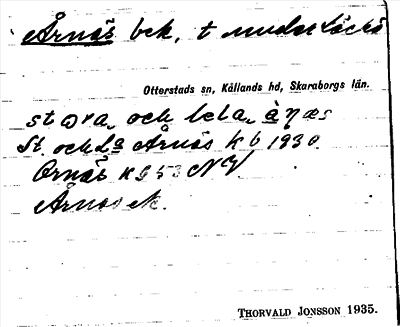 Årnäs bek, t under Läckö
Otterstads sn, Kållands hd, Skaraborgs län.
stora och lela, ànæs
St. och La Årnäs kb 1930.
Ornäs K 9 53 NV
Årnäs
THORVALD JONSSON 1935.